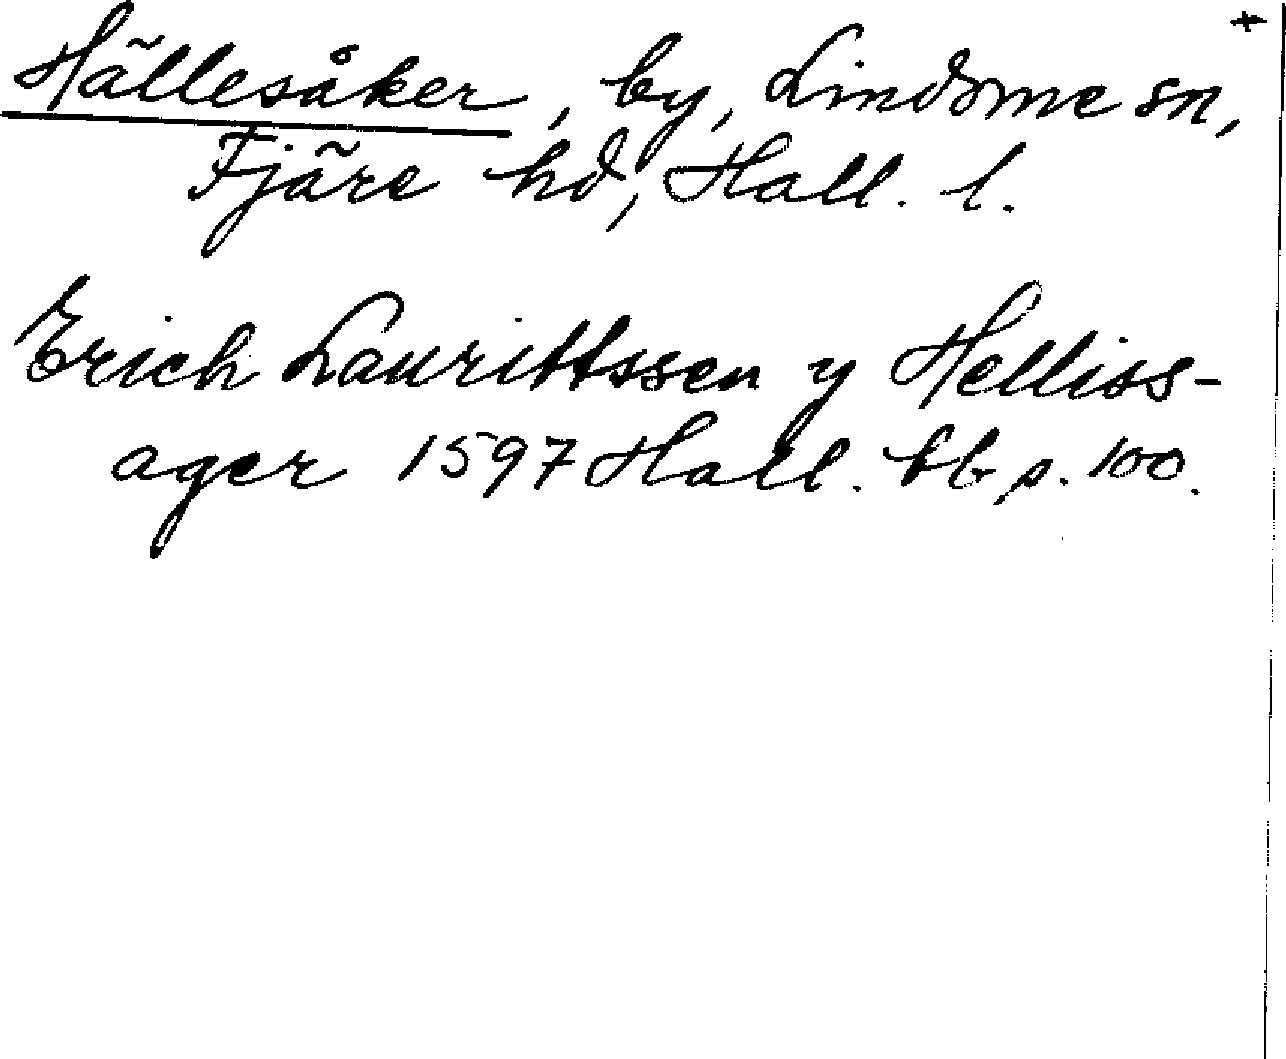 +
Hällesåker, by, Lindome sn,
Fjäre hd, Hall. l.
Erich Laurittssen y Helliss-
ager 1597 Hall. bb, s. 100.